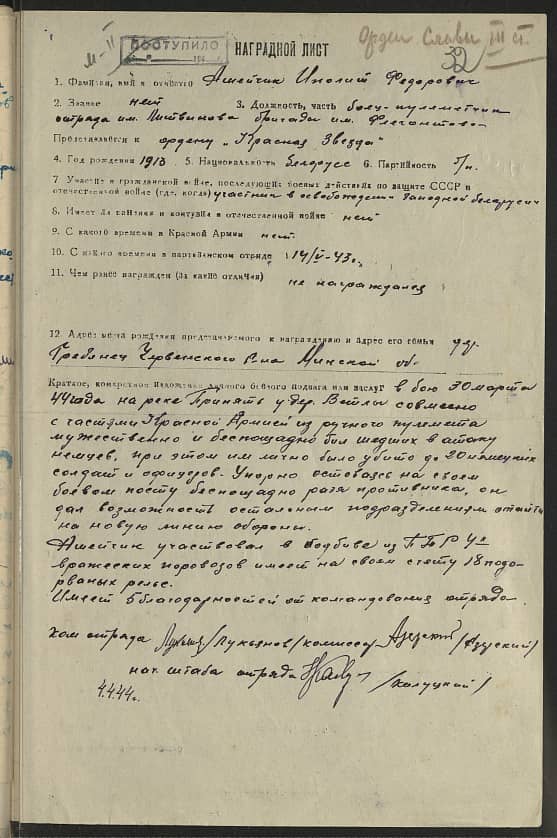 М-II
ПОСТУПИЛО
Орден Славы III ст.
32
НАГРАДНОЙ ЛИСТ
1. Фамилия, имя и отчество Ашейчик Иполит Федорович
2. Звание нет 3. Должность, часть боец-пулеметчик
отряда им. Литвинова бригады им. Флегонтова
Представляется к ордену „Красная Звезда"
4. Год рождения 1913 5. Национальность белорусс 6. Партийность б/п.
7. Участие в гражданской войне, последующих боевых действиях по защите СССР и
отечественной войне (где, когда) участник в освобождении Западной Белорусии
8. Имеет ли ранения и контузии в отечественной войне нет
9. С какого времени в Красной Армии нет.
10. С какого времени в партизанском отряде 14/V-43г.
11. Чем ранее награжден (за какие отличия) не награждался
12. Адрес места рождения представляемого к награждению и адрес его семьи дер.
Гребенец Червенского р-на Минской об.
Краткое, конкретное изложение личного боевого подвига или заслуг в бою 30 марта
44 года на реке Припять у дер. Ветлы совместно
с частями Красной Армией из ручного пулемета
мужественно и беспощадно бил шедших в атаку
немцев, при этом им лично было убито до 20 немецких
солдат и офицеров. Упорно оставаясь на своем
боевом посту беспощадно разя противника, он
дал возможность остальным подразделениям отойти
на новую линию обороны.
Ашейчик участвовал в подбиве из ПТР 4х
вражеских паровозов имеет на своем счету 18 подо-
рваных рельс.
Имеет 5 благодарностей от командования отряда.
Ком отряда /Лукьянов/ комиссар /Азурский/
нач штаба отряда /Калуцкий/
4.4.44г.